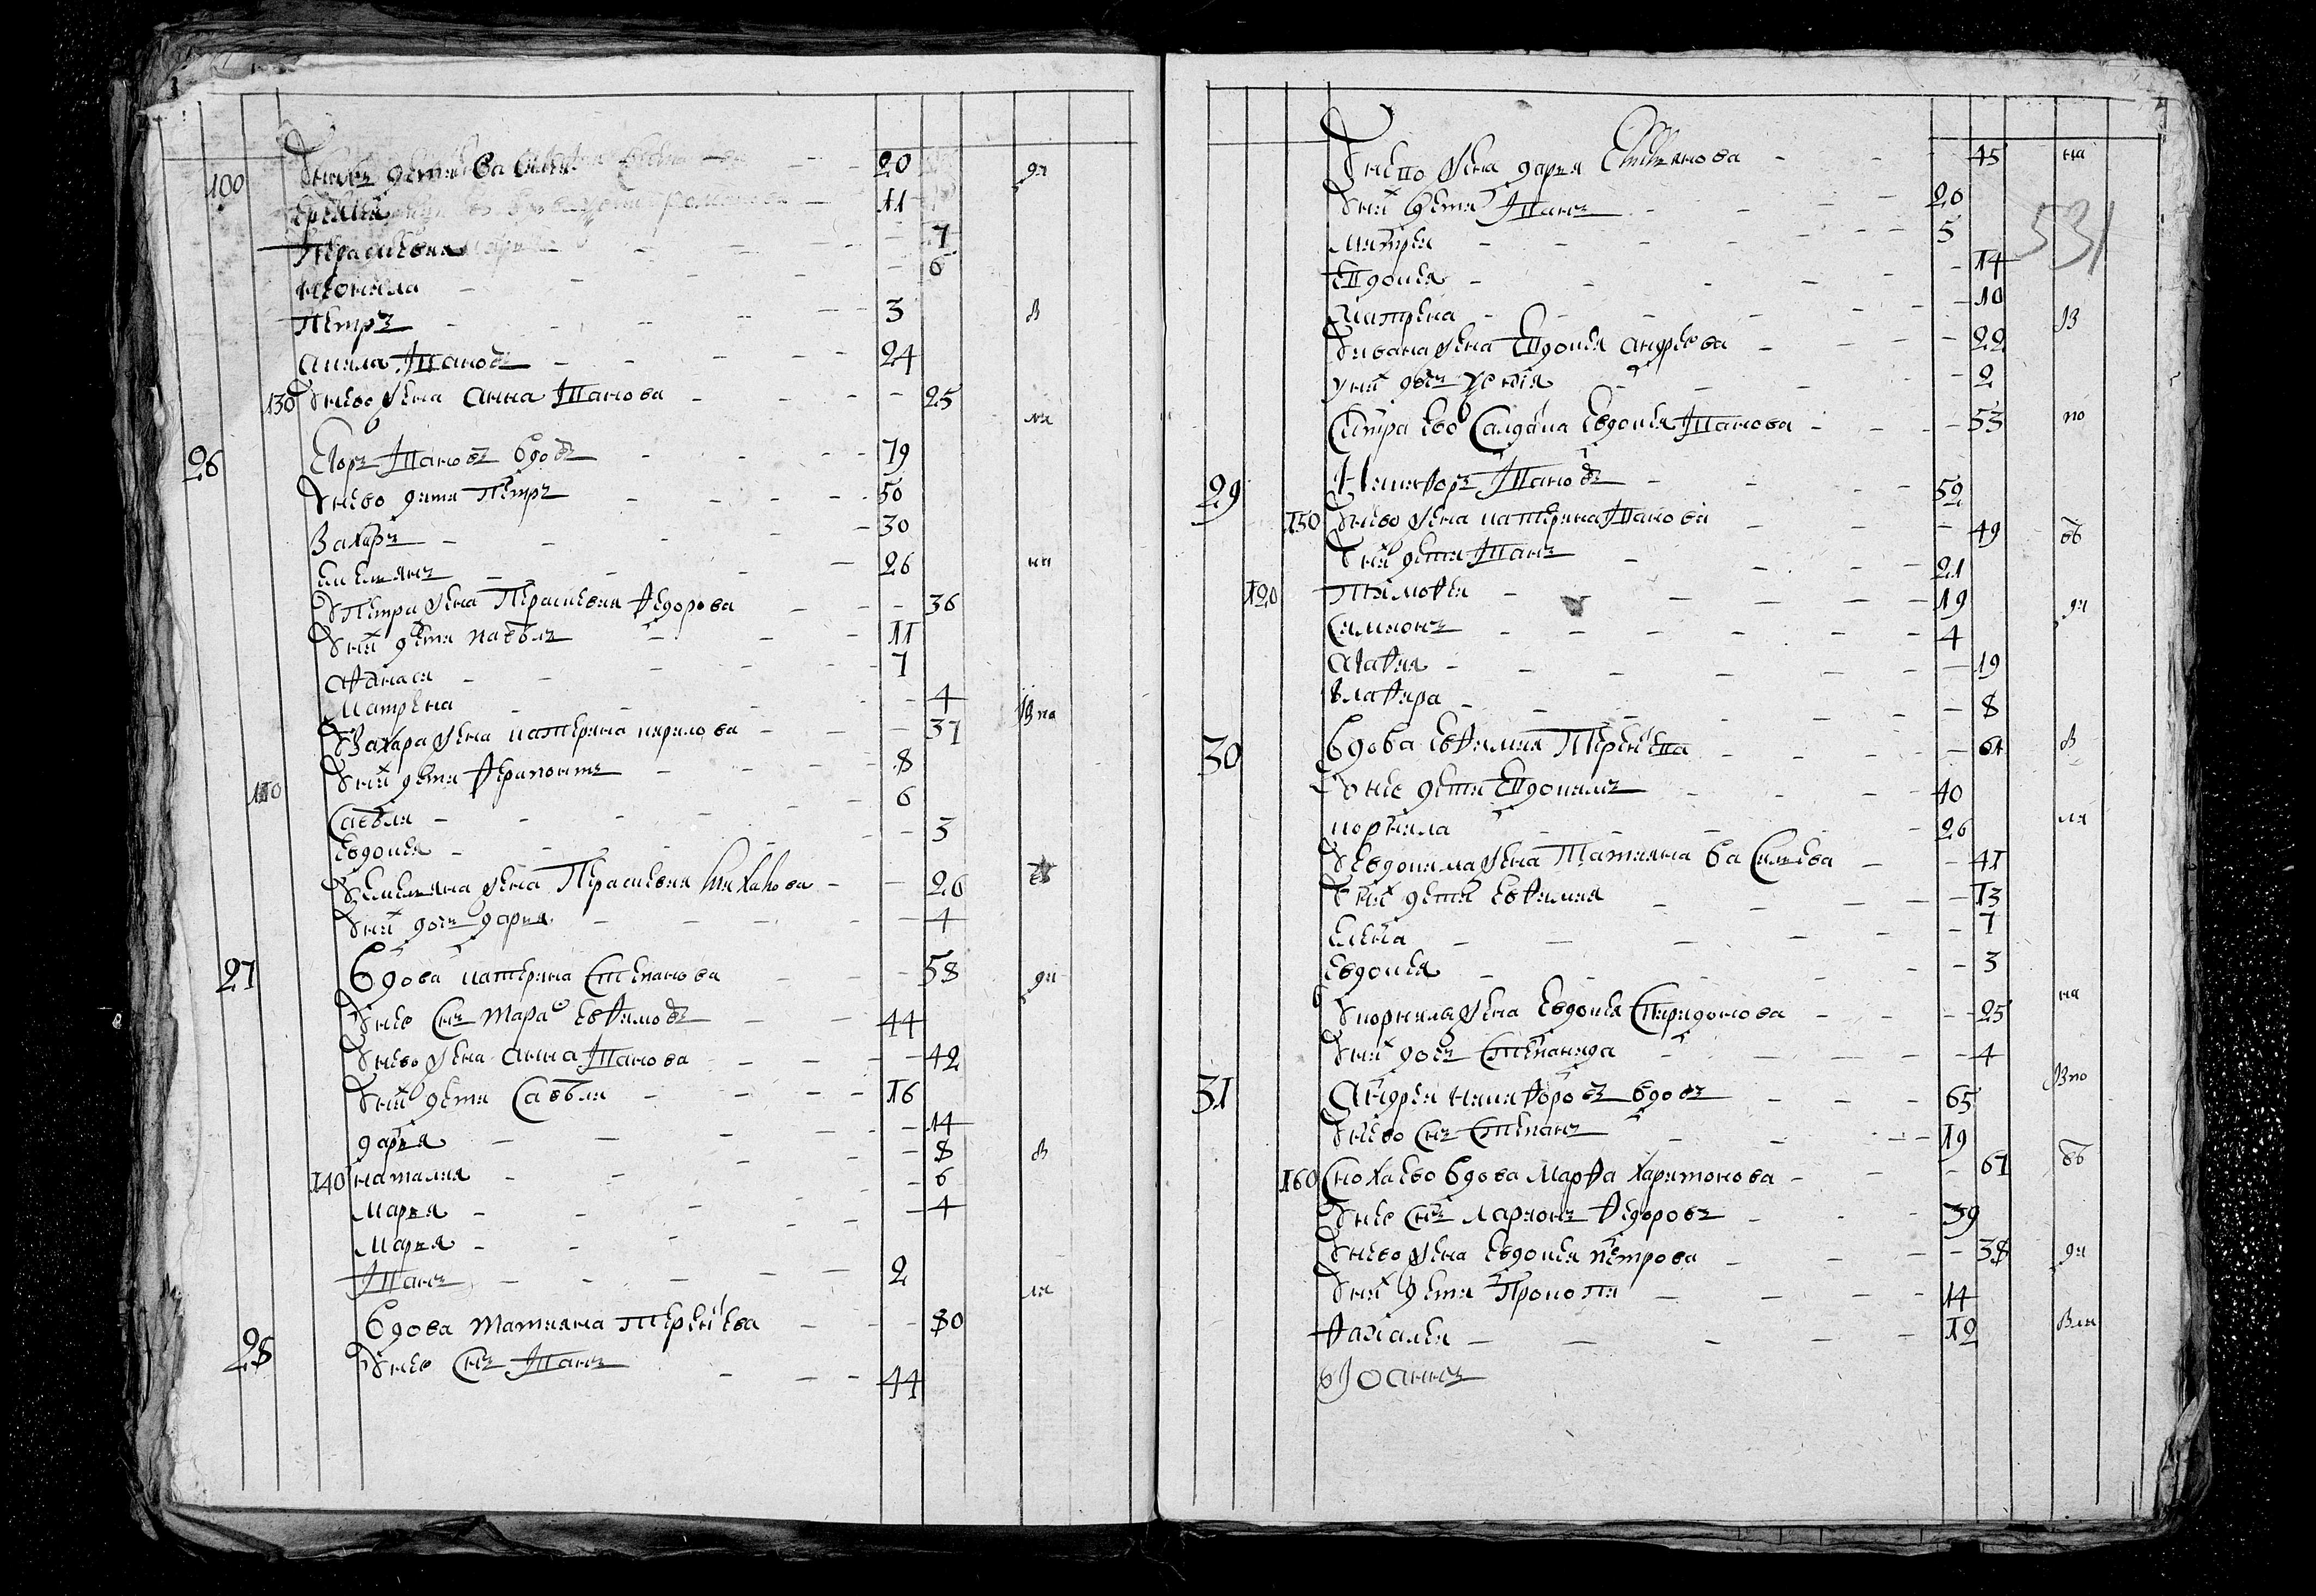 100 У нихъ дети Василей 20 ди
11
Парасковия 7
Неонила 6
Петръ 3 в
Анила Ивановъ 24
130 У нево жена Анна Иванова 25 ли
26 Егоръ Ивановъ вдовъ 79
У нево дети Петръ 50
Захаръ 30
Емельянъ 26 ни
У Петра жена Парасковия Федорова 36
У них дети Павелъ 11
Афанасей 7
Матрена 4
У Захара жена Катерина Кирилова 37 в по
110 У них дети Ферапонтъ 8
Савелей 6
Евдокея 3
У Емельяна жена Парасковия 26
У них дочь Дарья 4
27 Вдова Катерина Степанова 58 ди
У нее снъ Тарас Евфимовъ 44
У нево жена Анна Иванова 42
У них дети Савелей 16
Дарья 14
140 Наталия 8 в
Марья 6
Марья 4
Иванъ 2 ли
28 Вдова Татиана Терентьева 80
У нее снъ Иванъ 44
У нево жена Дарья Емельянова 45 на
531
У них дети Иванъ 20
Митрей 5
Евдокея 14
Матрена 10
У Ивана жена Евдокея Андреева 22 в
У них дочь Устия 2
Сестра ево салдатка Евдокея Иванова 53 по
29 Никифоръ Ивановъ 59
150 У нево жена Катерина Иванова 49 об
У них дети Иванъ 21
120 Тимофей 19 ди
Симионъ 4
Агафия 19
Глафира 8
30 Вдова Евфимия Терентьева 61 в
У нее дети Евдокимъ 40
Корнила 26 ли
У Евдокима жена Татиана Васильева 41
У них дети Евфимия 13
Елена 7
Евдокея 3
У Корнила жена Евдокея Спиридонова 25 на
У них дочь Степанида 4
31 Андрей Никифоровъ вдовъ 65 в по
У нево снъ Степанъ 19
160 Сноха ево вдова Марфа Харитонова 61 об
У нее снъ Ларионъ Федоровъ 39
У нево жена Евдокея Петрова 38 ди
У них дети Прокопей 14
Фадалей 12 в ли
Иоаннъ